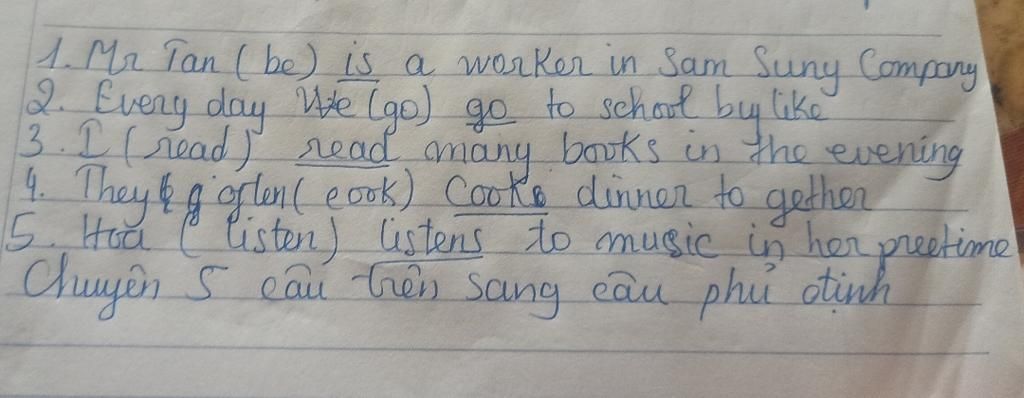 1. Mr Tan (be) is a worker in Sam Suny Company
2. Every day We (go) go to school by like
3. I (read) read many books in the evening
4. They often (cook) cook dinner to gether
5. Hoa (listen) listens to music in her preetime
Chuyên 5 câu trên sang câu phủ định